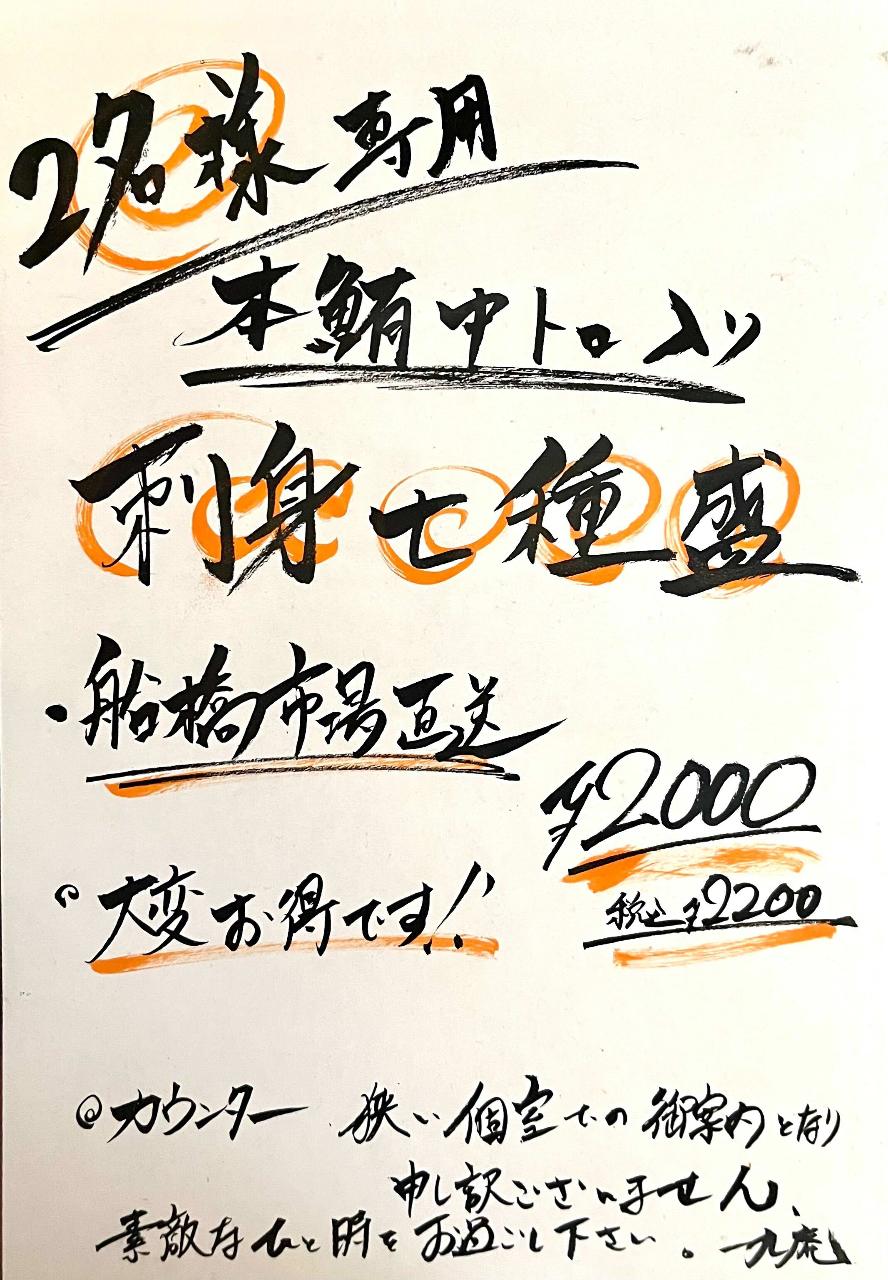 2名様専用
本鮪中トロ入り
刺身七種盛
・船橋市場直送
¥2000
。大変お得です!!
税込¥2200
◎カウンター 狭い個室での御案内となり
申し訳ございません、
素敵なひと時をお過ごし下さい。